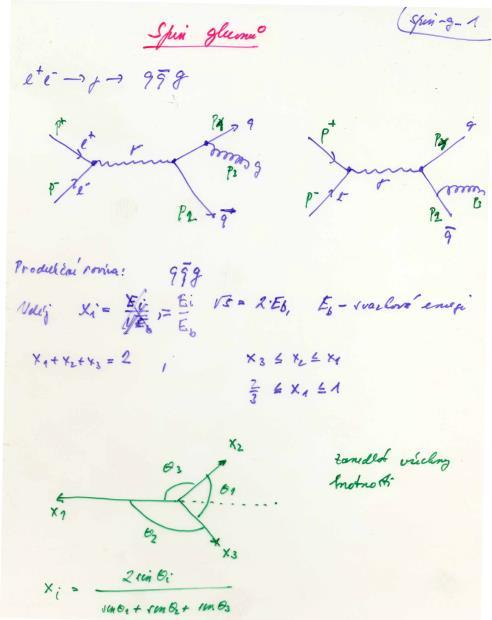 spin-g-1.
Spin gluonů
e⁺e⁻ → γ → q q̄ g
p⁺ e⁺ γ p₁ q g p₃
p⁻ e⁻ p₂ q̄
p⁺ γ p₁ q
p⁻ e⁻ p₂ p₃ q̄
Produkční rovina: q q̄ g
xᵢ = Eᵢ/E_b, √s = 2·E_b, E_b - svazková energi
x₁+x₂+x₃ = 2 , x₃ ≤ x₂ ≤ x₁
2/3 ≤ x₁ ≤ 1
x₂
θ₃ θ₁
x₁ θ₂ x₃
Zanedbat všechny
hmotnosti
xᵢ = 2 sin θᵢ / (sin θ₁ + sin θ₂ + sin θ₃)